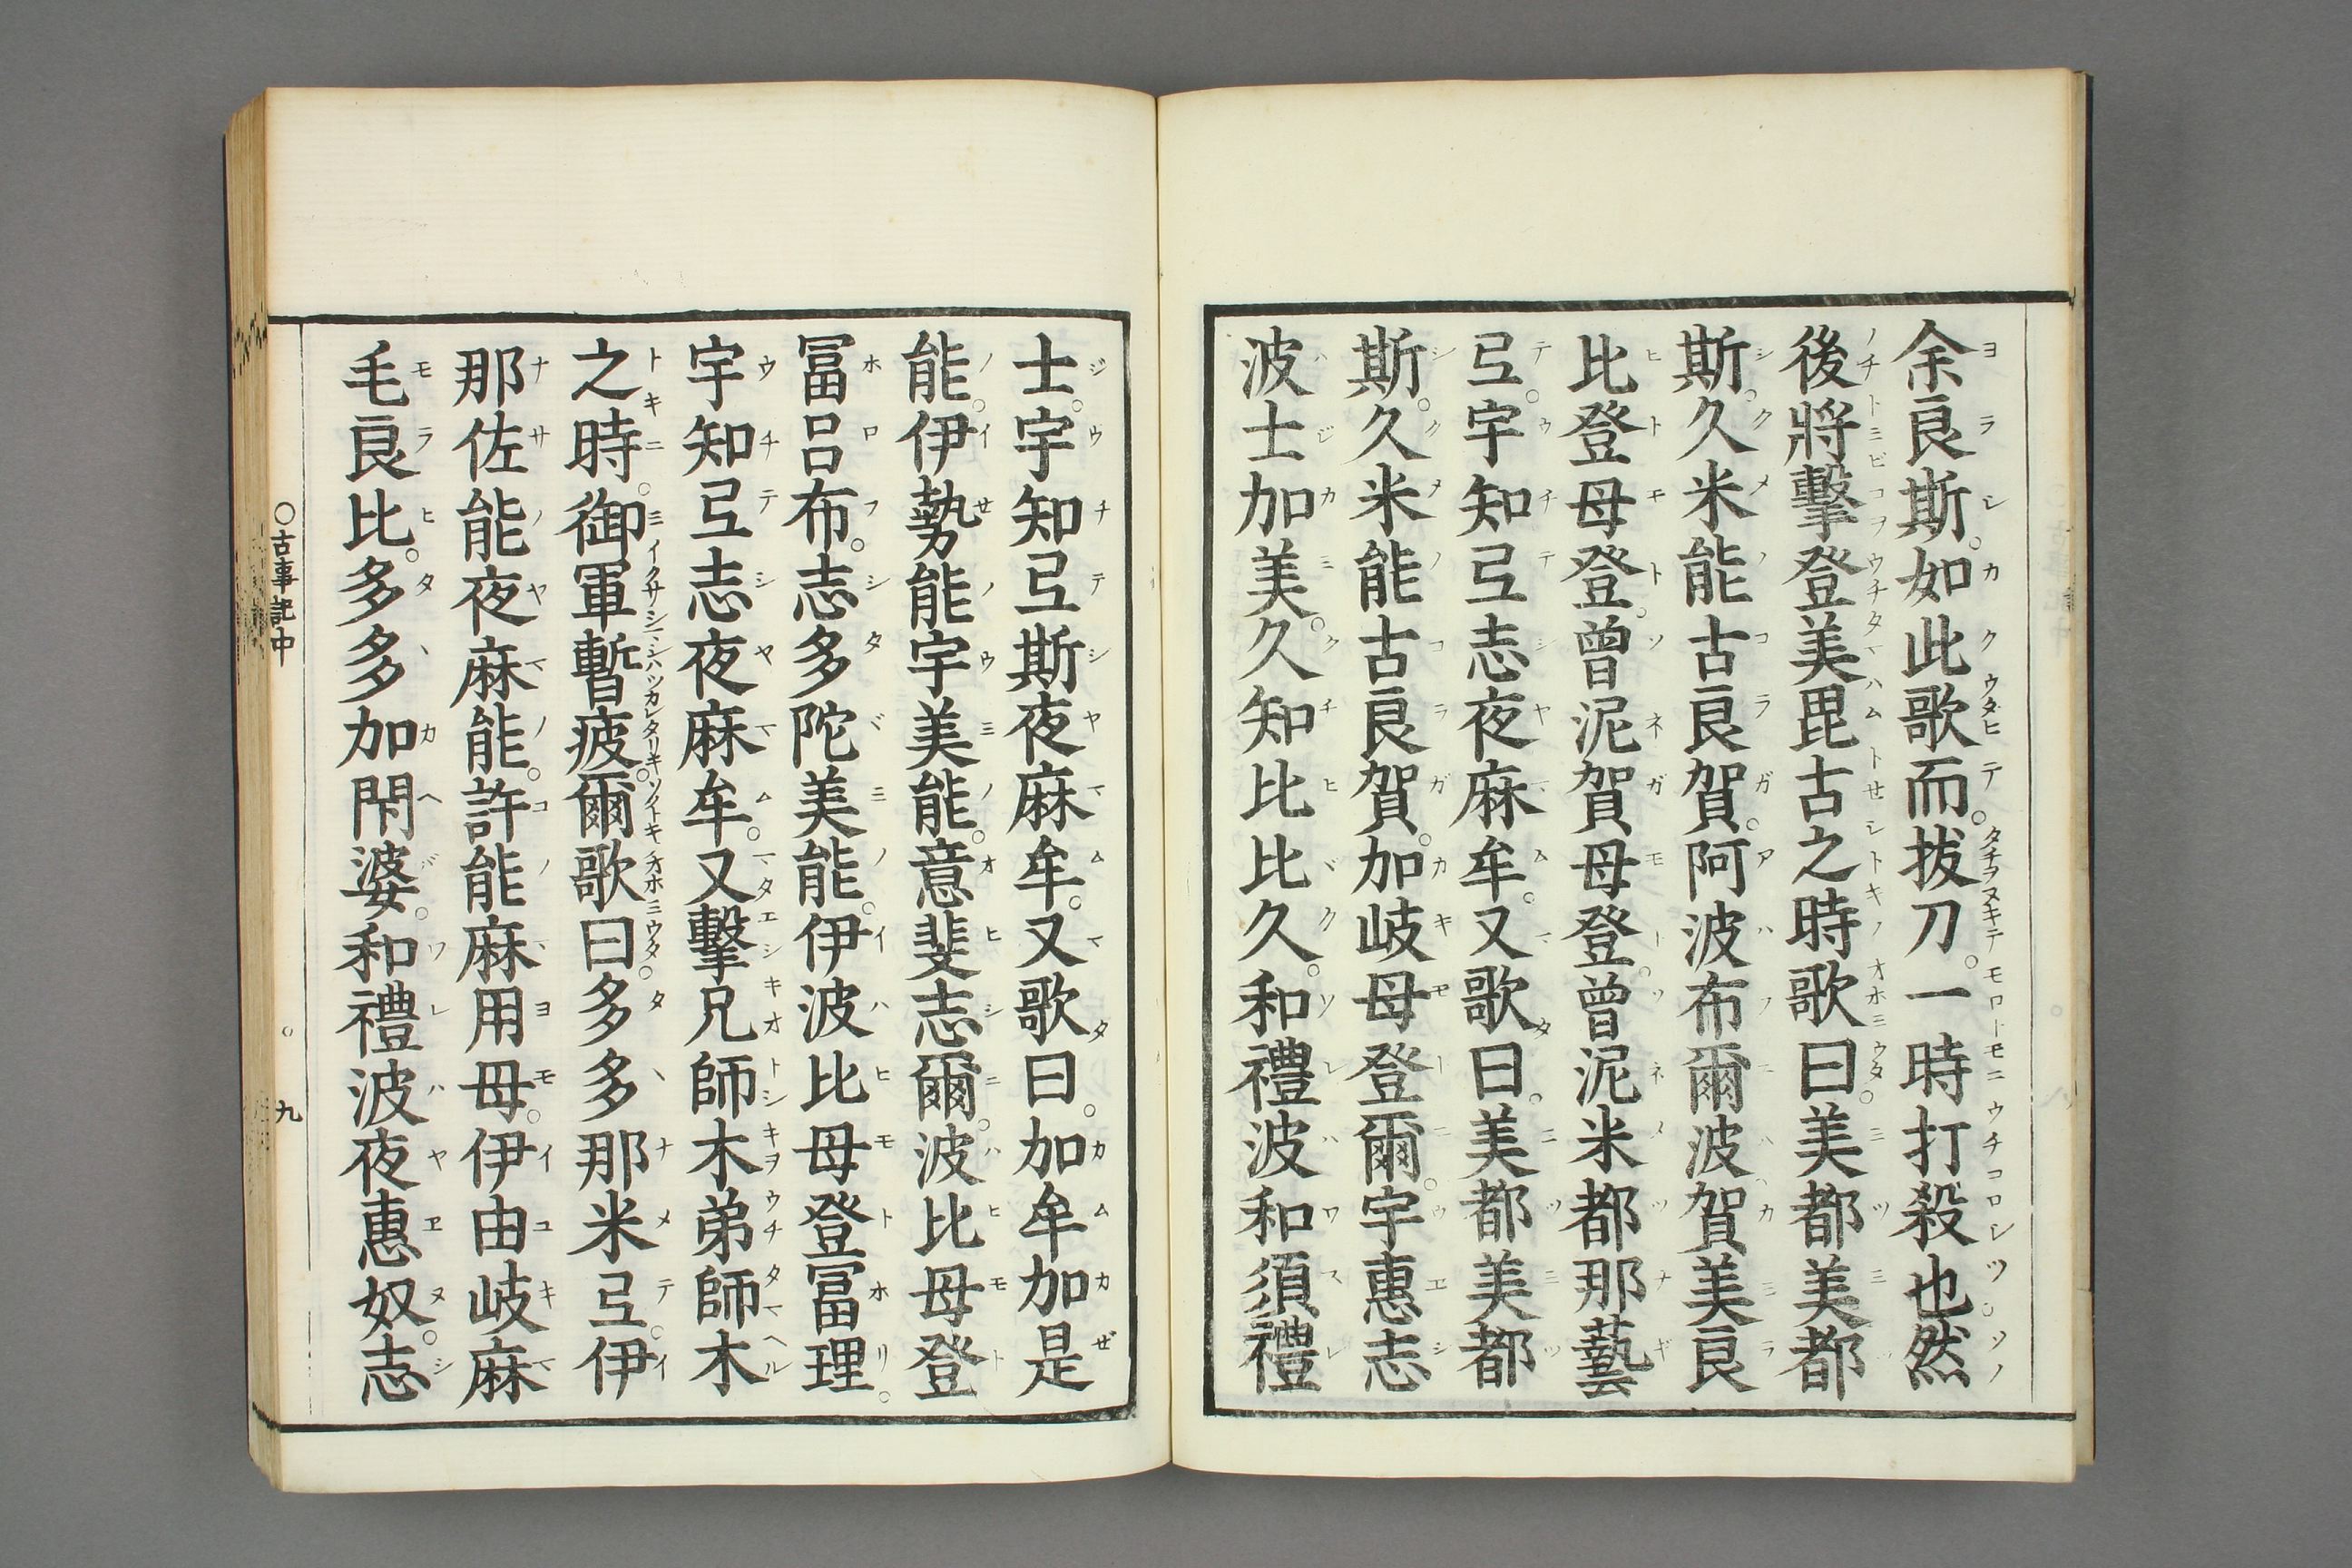 余良斯。如此歌而。拔刀。一時打殺也。然
後將擊登美毘古之時歌曰。美都美都
斯。久米能古良賀。阿波布爾波、賀美良
比登母登。曾泥賀母登。曾泥米都那藝
弖。宇知弖志夜麻牟。又歌曰。美都美都
斯。久米能古良賀。加岐母登爾。宇惠志
波士加美。久知比比久。和禮波和須禮
士。宇知弖斯夜麻牟。又歌曰。加牟加是
能。伊勢能宇美能。意斐志爾。波比母登
冨呂布。志多陀美能。伊波比母登冨理。
宇知弖志夜麻牟。又擊兄師木弟師木
之時。御軍暫疲。爾歌曰。多多那米弖。伊
那佐能夜麻能。許能麻用母。伊由岐麻
毛良比。多多加閇婆。和禮波夜惠奴。志
○古事記中
九